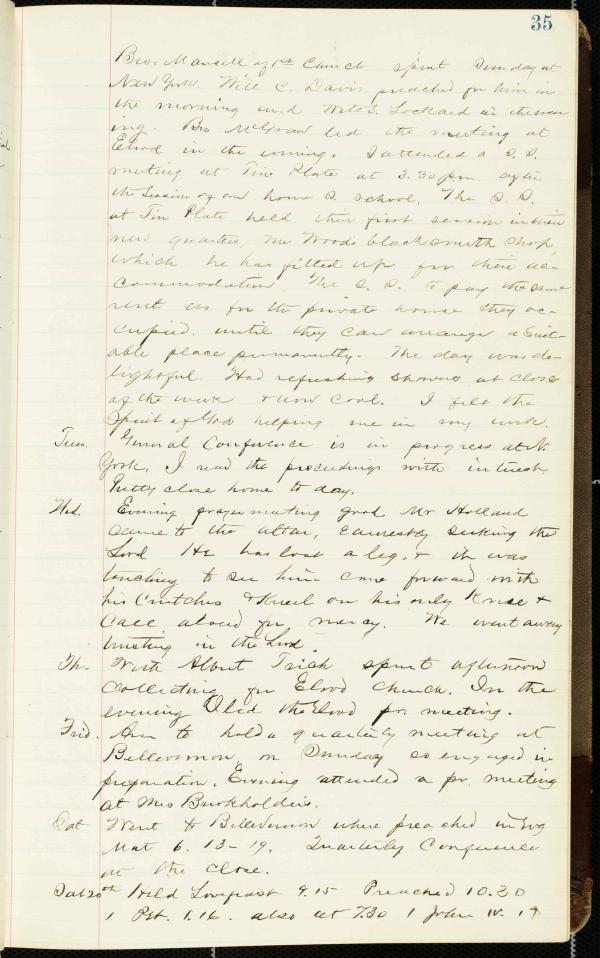 35
Bro. Mansell of 1st Church spent Sunday at
New York. Will C. Davis preached for him in
the morning and Wm S. Lockard in the even
ing. Bro McGraw led the meeting at
Elrod in the evening. I attended a S. S.
meeting at Tin Plate at 3.30 p.m. after
the session of our home S. school. The S. S.
at Tin Plate held their first session in their
new quarters, Mr Woods blacksmith shop,
which he has fitted up for their ac-
commodation. The S. S. to pay the same
rent as for the private house they oc-
cupied, until they can arrange a suit-
able place permanently. The day was de-
lightful. Had refreshing showers at close
of the week & now cool. I felt the
Spirit of God helping me in my work.
Tues. General Conference is in progress at N.
York. I read the proceedings with interest.
Pretty close home to day.
Wed. Evening prayer meeting good Mr Holland
came to the altar, earnestly seeking the
Lord He has lost a leg. & it was
touching to see him come forward with
his crutches & kneel on his only knee &
call aloud for mercy. He went away
trusting in the Lord.
Th. With Albert Trich spent afternoon
collecting for Elrod Church. In the
evening I led the Elrod pr. meeting.
Frid. Am to hold a quarterly meeting at
Bellevernon on Sunday so engaged in
preparation. Evening attended a pr. meeting
at Mrs Burkholders.
Sat Went to Bellevernon where preached in Evg
Mat 6. 13-19. Quarterly Conference
at the close.
Sab 20th Held Lovefeast 9.15 Preached 10.30
1 Pet. 1.16. also at 7.30 1 John IV. 17